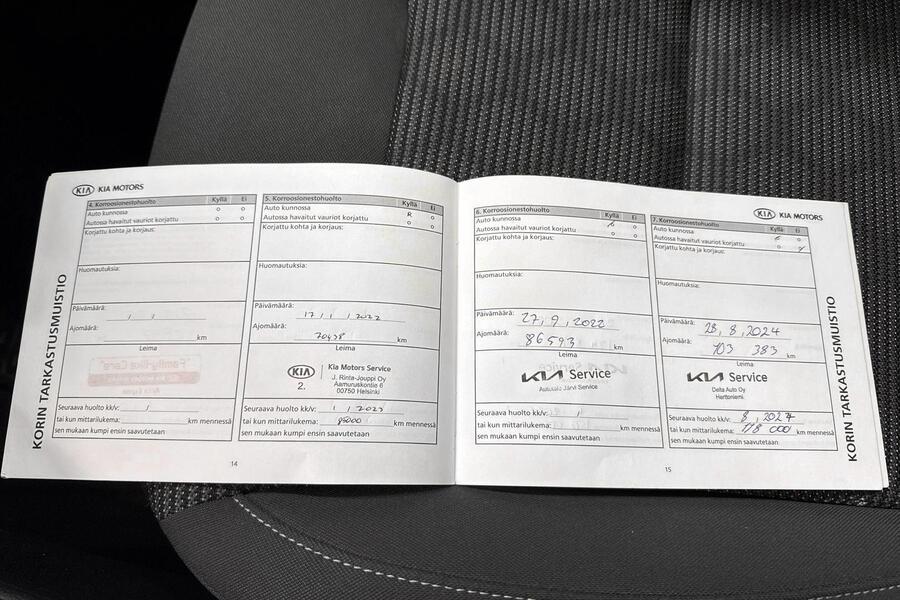 KIA KIA MOTORS
KORIN TARKASTUSMUISTIO
4. Korroosionestohuolto Kyllä Ei
Auto kunnossa o o
Autossa havaitut vauriot korjattu o o
Korjattu kohta ja korjaus:
Huomautuksia:
Päivämäärä: / /
Ajomäärä: km
Leima
Seuraava huolto kk/v: /
tai kun mittarilukema: km mennessä
sen mukaan kumpi ensin saavutetaan
14
5. Korroosionestohuolto Kyllä Ei
Auto kunnossa R o
Autossa havaitut vauriot korjattu o o
Korjattu kohta ja korjaus:
Huomautuksia:
Päivämäärä: 17 / 1 / 2022
Ajomäärä: km
Leima
KIA Kia Motors Service
2. J. Rinta-Jouppi Oy
Aamuruskontie 6
00750 Helsinki
Seuraava huolto kk/v: 1 / 2023
tai kun mittarilukema: km mennessä
sen mukaan kumpi ensin saavutetaan
6. Korroosionestohuolto Kyllä Ei
Auto kunnossa o
Autossa havaitut vauriot korjattu o o
Korjattu kohta ja korjaus:
Huomautuksia:
Päivämäärä: 27, 9, 2022
Ajomäärä: 86593 km
Leima
KIA Service
Järvi Service
Seuraava huolto kk/v: /
tai kun mittarilukema: km mennessä
sen mukaan kumpi ensin saavutetaan
15
KIA KIA MOTORS
7. Korroosionestohuolto Kyllä Ei
Auto kunnossa o
Autossa havaitut vauriot korjattu o
Korjattu kohta ja korjaus:
Huomautuksia:
Päivämäärä: 28, 8, 2024
Ajomäärä: 103 383 km
Leima
KIA Service
Delta Auto Oy
Herttoniemi
Seuraava huolto kk/v: 8, 2027
tai kun mittarilukema: 118 000 km mennessä
sen mukaan kumpi ensin saavutetaan
KORIN TARKASTUSMUISTIO